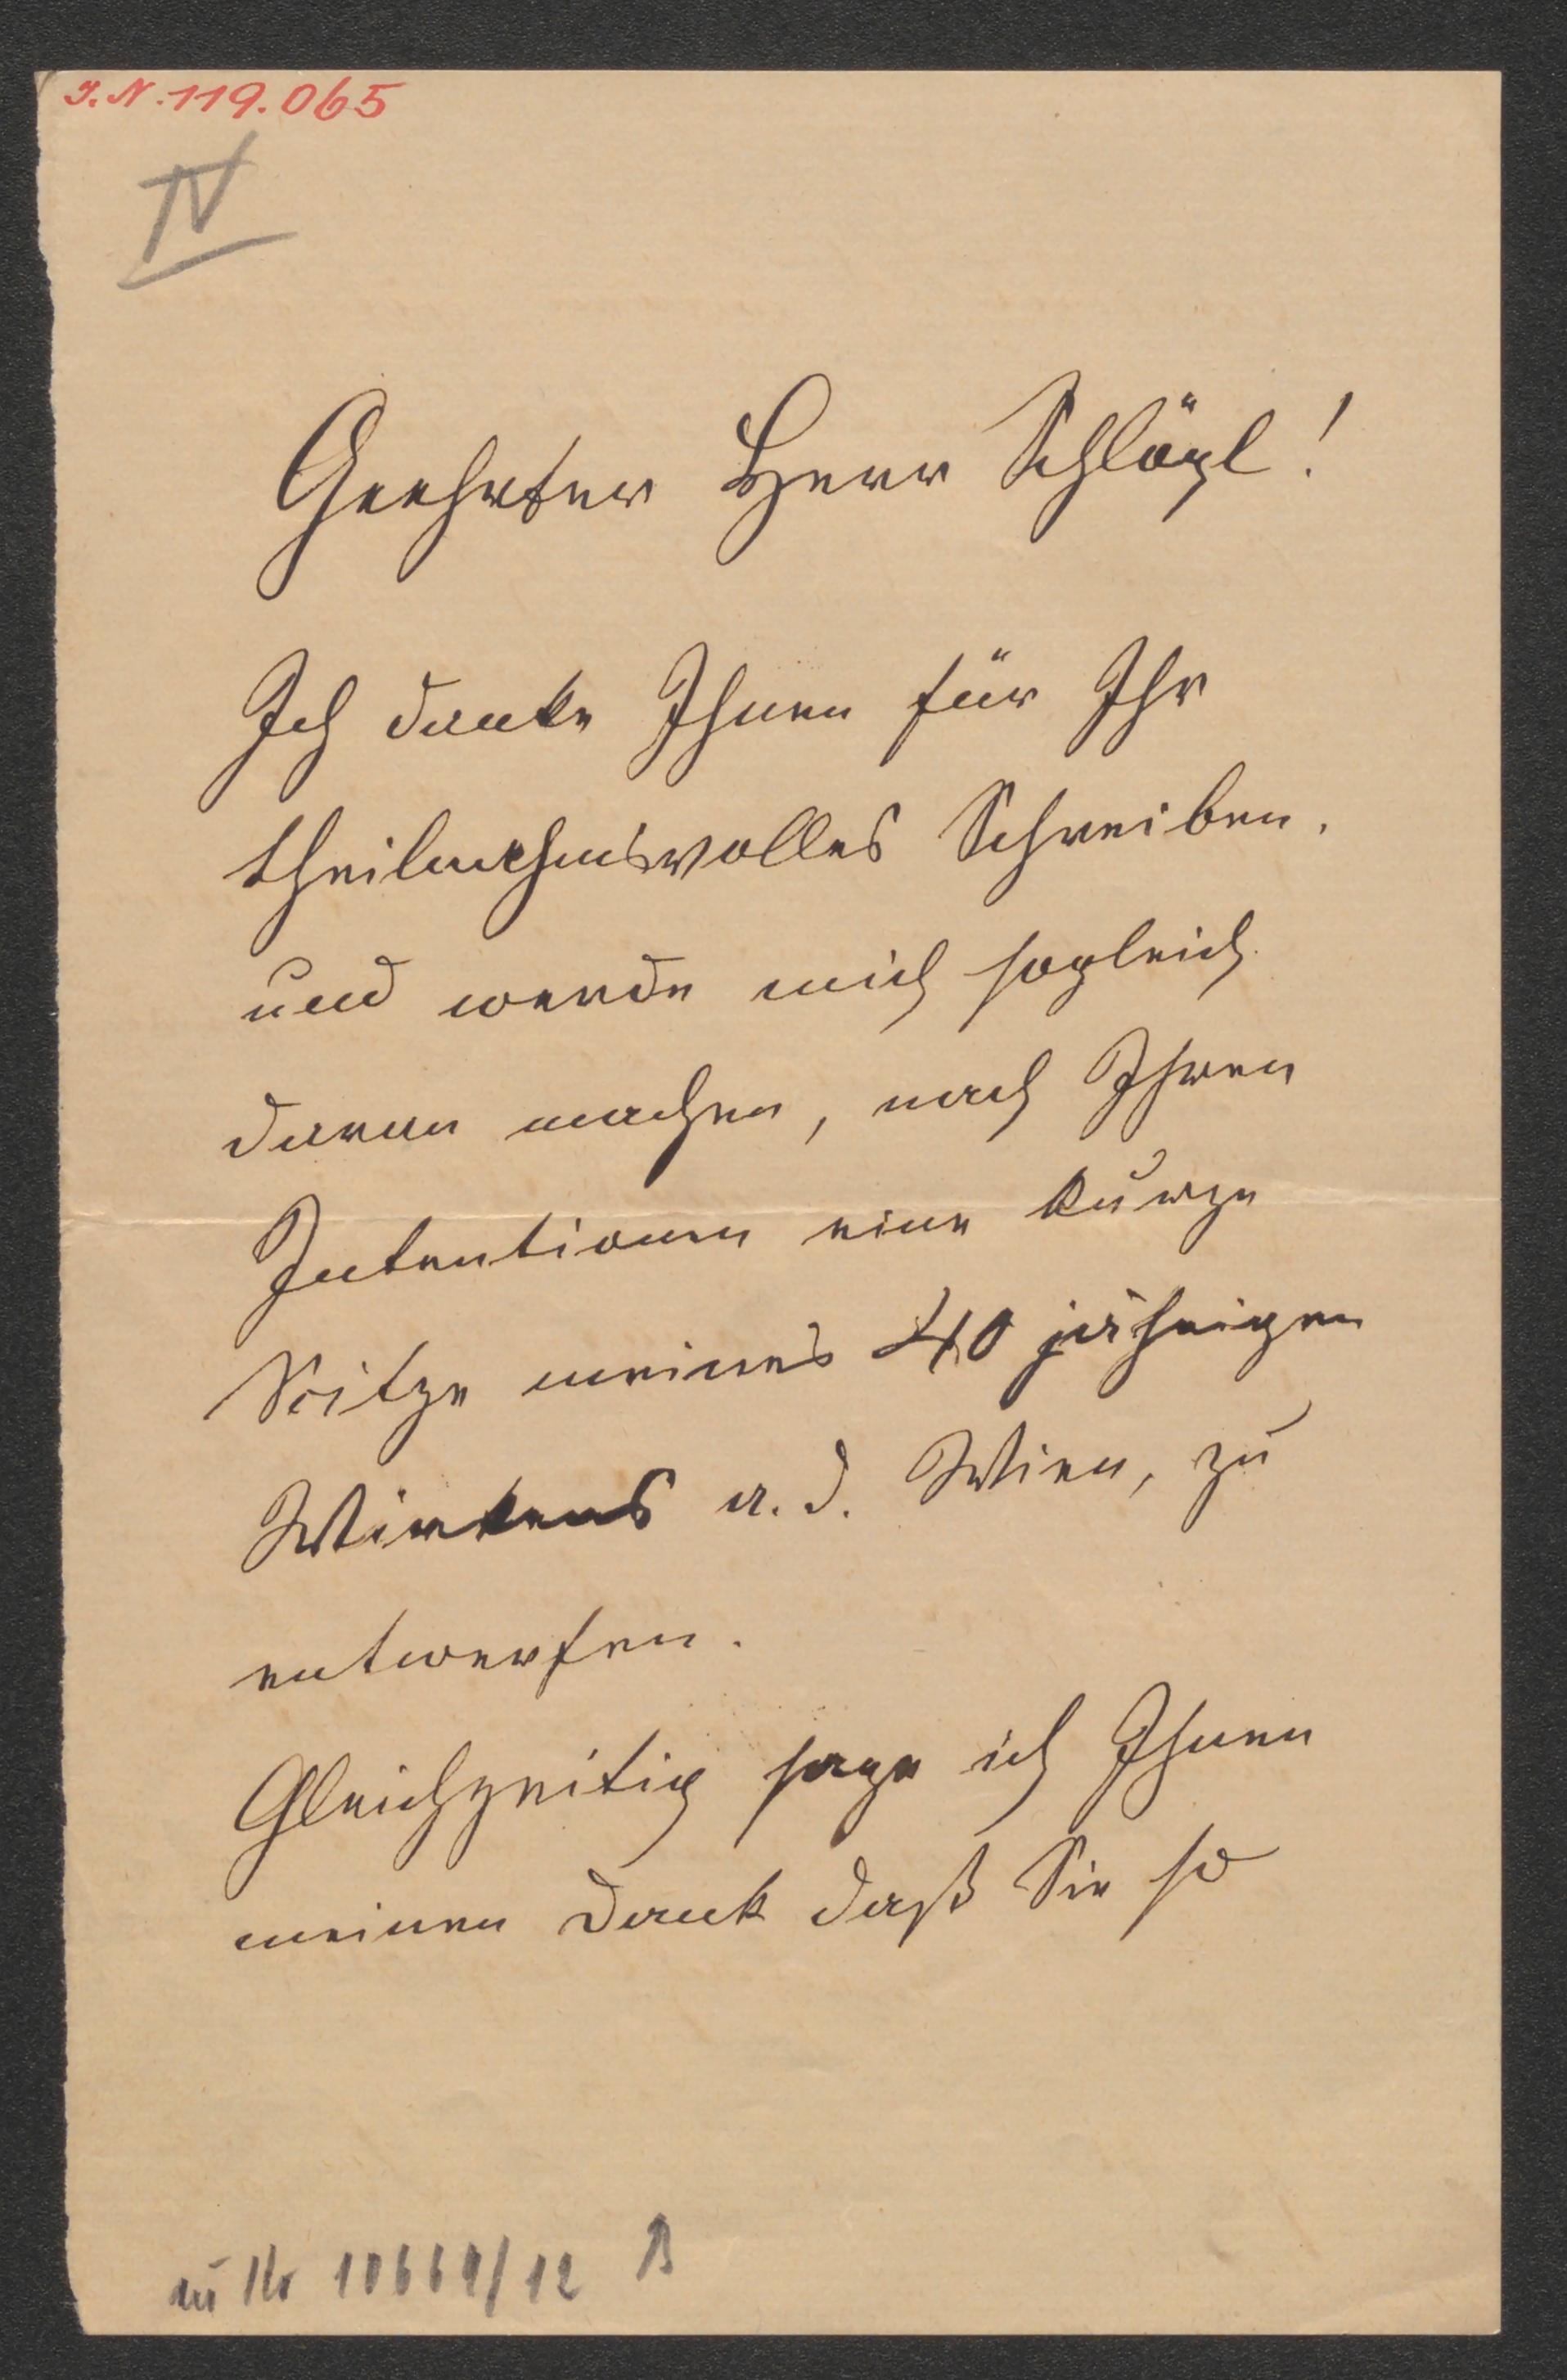 J.N. 119.065
IV
Geehrter Herr Schlögl!
Ich danke Ihnen für Ihr
theilnehmsvolles Schreiben.
und werde mich sogleich
daran machen, nach Ihren
Intentionen eine kurze
Scitze meines 40 jährigen
Wirkens a. d. Wien, zu
entwerfen.
Gleichzeitig sage ich Ihnen
meinen Dank daß Sie so
Nr